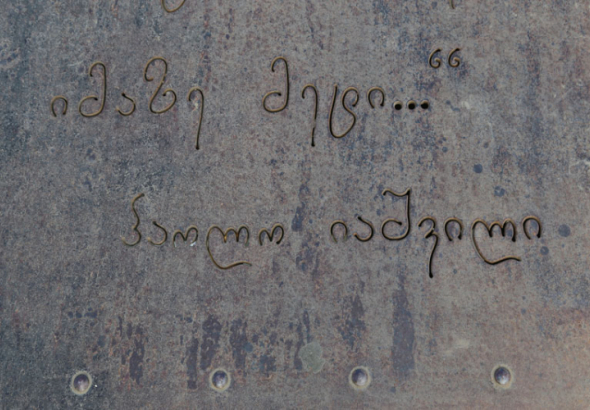 იმაზე მეტი..."
პაოლო იაშვილი